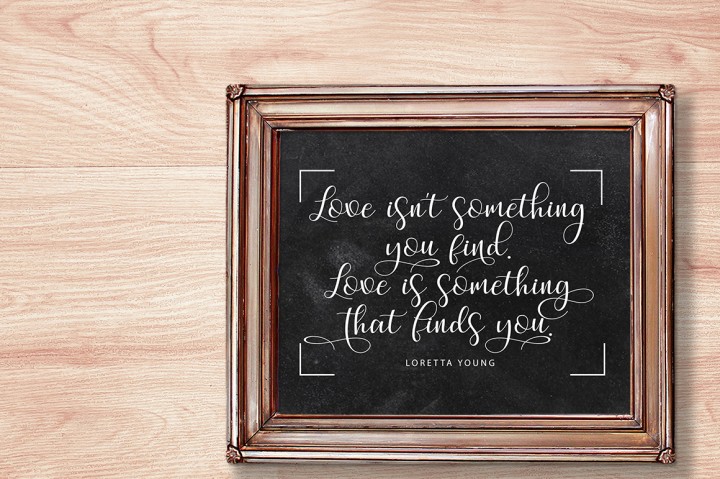 Love isn't something
you find.
Love is something
that finds you.
LORETTA YOUNG